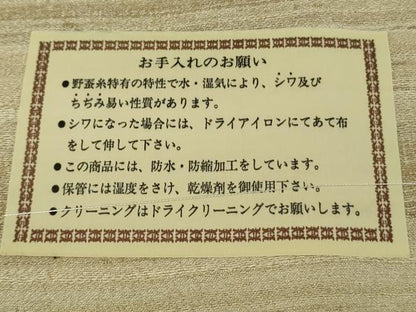 お手入れのお願い
●野蚕糸特有の特性で水・湿気により、シワ及び
ちぢみ易い性質があります。
●シワになった場合には、ドライアイロンにてあて布
をして伸して下さい。
●この商品には、防水・防縮加工をしています。
●保管には湿度をさけ、乾燥剤を御使用下さい。
●クリーニングはドライクリーニングでお願いします。